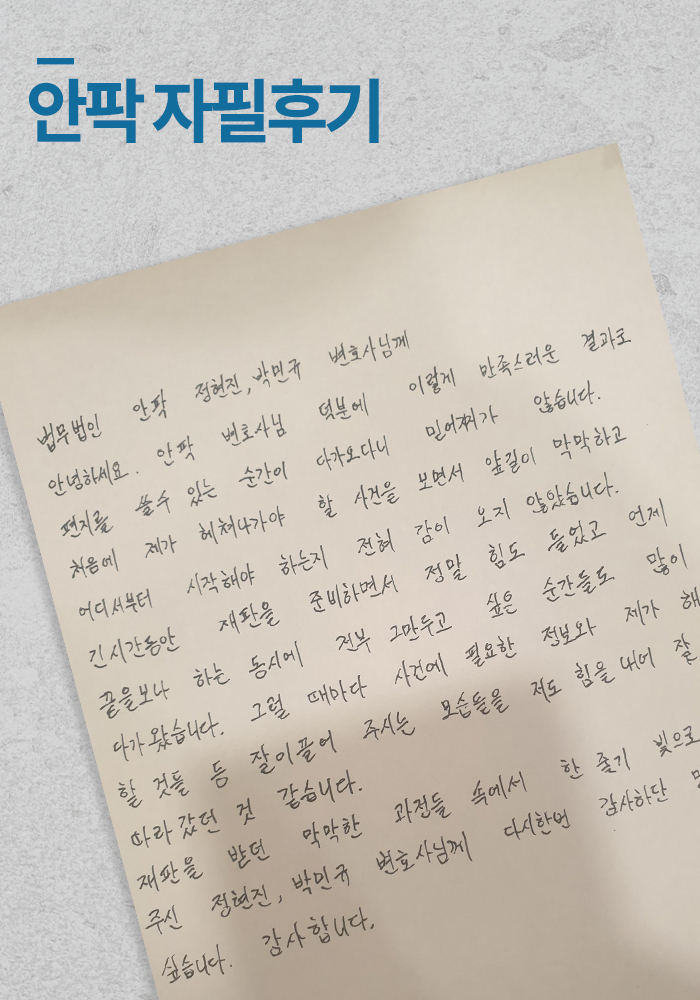 안팍 자필후기
법무법인 안팍 정현진, 박민규 변호사님께
안녕하세요. 안팍 변호사님 덕분에 이렇게 만족스러운 결과로
편지를 쓸 수 있는 순간이 다가오다니 믿어지가 않습니다.
처음에 제가 헤쳐나가야 할 사건을 보면서 앞길이 막막하고
어디서부터 시작해야 하는지 전혀 감이 오지 않았습니다.
긴 시간동안 재판을 준비하면서 정말 힘도 들었고 언제
끝을보나 하는 동시에 전부 그만두고 싶은 순간들도 많이
다가왔습니다. 그럴 때마다 사건에 필요한 정보와 제가 해
할 것들 등 잘 이끌어 주시는 모습들을 저도 힘을 내어 잘
따라갔던 것 같습니다.
재판을 받던 막막한 과정들 속에서 한 줄기 빛으로
주신 정현진, 박민규 변호사님께 다시한번 감사하단
싶습니다. 감사합니다.